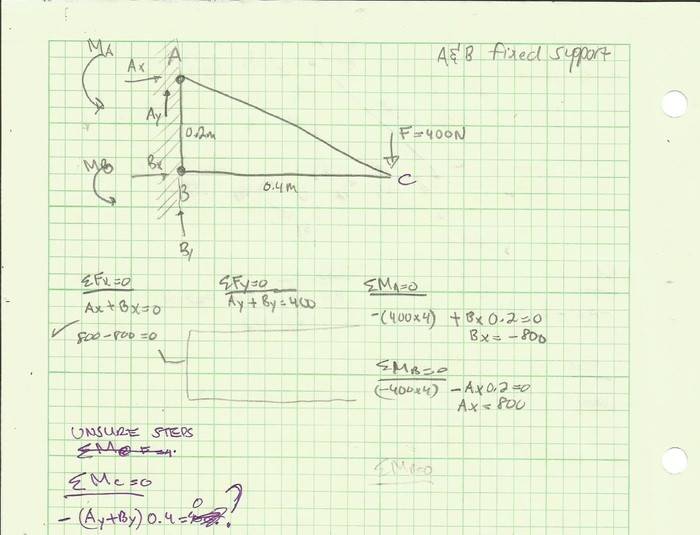 A&B fixed support
MA
Ax
A
Ay
0.2m
F=400N
MB
Bx
B
0.4m
C
By
ΣFx=0
Ax+Bx=0
✓ 800-800=0
ΣFy=0
Ay+By=400
ΣMA=0
-(400x4) +Bx 0.2=0
Bx=-800
ΣMB=0
(-400x4) -Ax0.2=0
Ax=800
UNSURE STEPS
ΣMc=0
-(Ay+By)0.4=0?